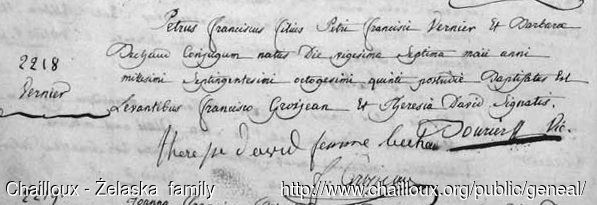 Petrus Franciscus Filius Petri Francisci Vernier Et Barbara
Bechaud Conjugum natus Die vigesima Septima maii anni
2218
Vernier
milesimi Septingentesimi octogesimi quinti postridie Baptisatus Est
Levantibus Francisco Grosjean Et Theresia David Signatis.
therese david femme bechau Dourier Vic.
f. Grosjean
Chailloux - Żelaska family http://www.chailloux.org/public/geneal/
2219 Joanna